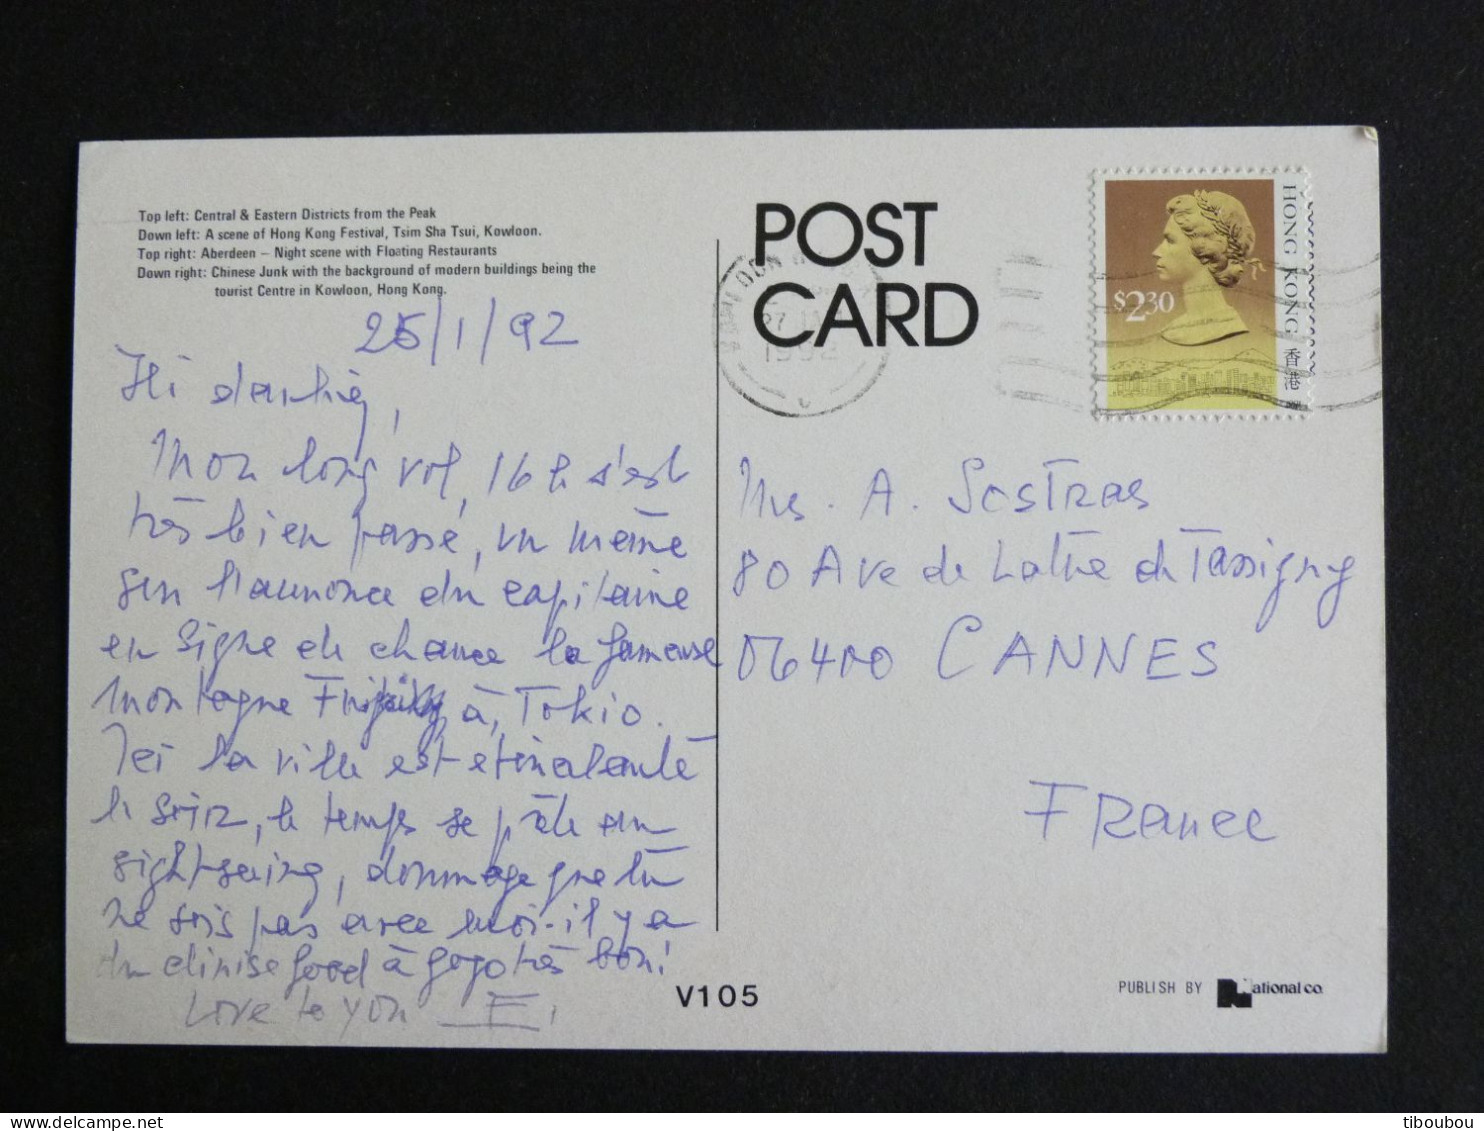 Top left: Central & Eastern Districts from the Peak
Down left: A scene of Hong Kong Festival, Tsim Sha Tsui, Kowloon.
Top right: Aberdeen – Night scene with Floating Restaurants
Down right: Chinese Junk with the background of modern buildings being the
tourist Centre in Kowloon, Hong Kong.
25/1/92
Hi darling,
Mon long vol, 16 h s'est
très bien passé, vu même
sur l'annonce du capitaine
en signe de chance la fameuse
montagne à, Tokio.
Ici la ville est etincelante
le soir, le temps se prête au
sightseeing, dommage que tu
ne sois pas avec moi-il y a
du chinise food à gogo très bon!
Love to you E.
POST
CARD
1992
HONG KONG 香港
$2.30
Mrs. A. Sostras
80 Ave de Lattre de Tassigny
06400 CANNES
France
V105
PUBLISH BY National co.
tiboubou